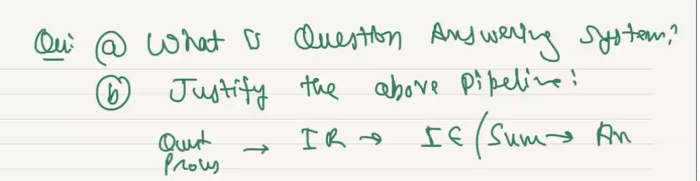 Qu: (a) What is Question Answering System?
(b) Justify the above pipeline:
Quest → IR → IE/Sum → An
Proces